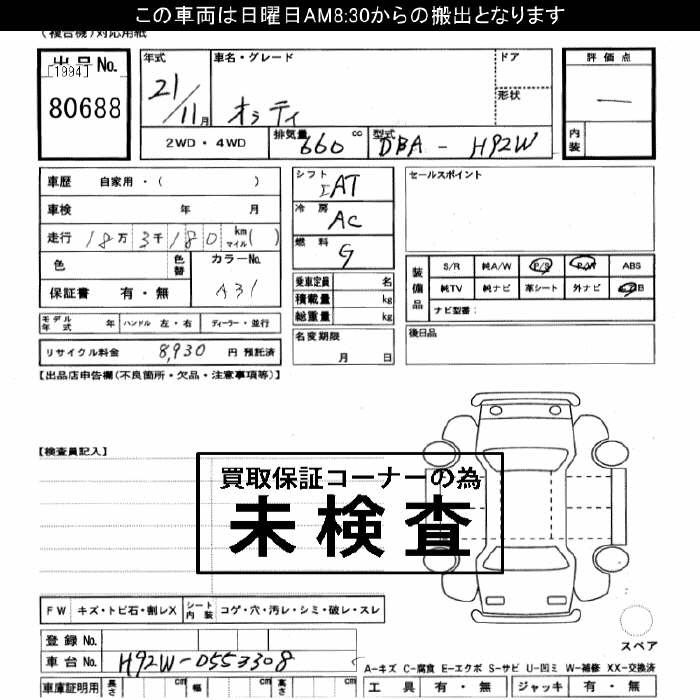 この車両は日曜日AM8:30からの搬出となります
(複合機)対応用紙
出品No. [1994]
80688
年式 21/11月
車名・グレード オッティ
ドア
形状
評価点 —
内装
2WD・4WD
排気量 660 cc
型式 DBA - H92W
車歴 自家用・( )
車検 年 月
走行 18万 3千 180 km マイル( )
色 色替 カラーNo. A31
保証書 有・無
シフト IAT
冷房 AC
燃料 G
乗車定員 名
積載量 kg
総重量 kg
セールスポイント
装備品 S/R 純A/W P/S P/W ABS
純TV 純ナビ 革シート 外ナビ B
ナビ型番:
モデル年式 年 ハンドル 左・右 ディーラー・並行
名変期限 月 日
後日品
リサイクル料金 8,930 円 預託済
【出品店申告欄(不良箇所・欠品・注意事項等)】
【検査員記入】
買取保証コーナーの為
未検査
FW キズ・トビ石・割レX シート内装 コゲ・穴・汚レ・シミ・破レ・スレ
スペア
登録No.
車台No. H92W-0553308
A-キズ C-腐食 E-エクボ S-サビ U-凹ミ W-補修 XX-交換済
車庫証明用 長さ cm 幅 cm 高さ cm
工具 有・無 ジャッキ 有・無